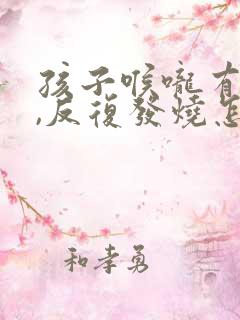 孩子喉嚨有
,反復發燒怎
和孝勇